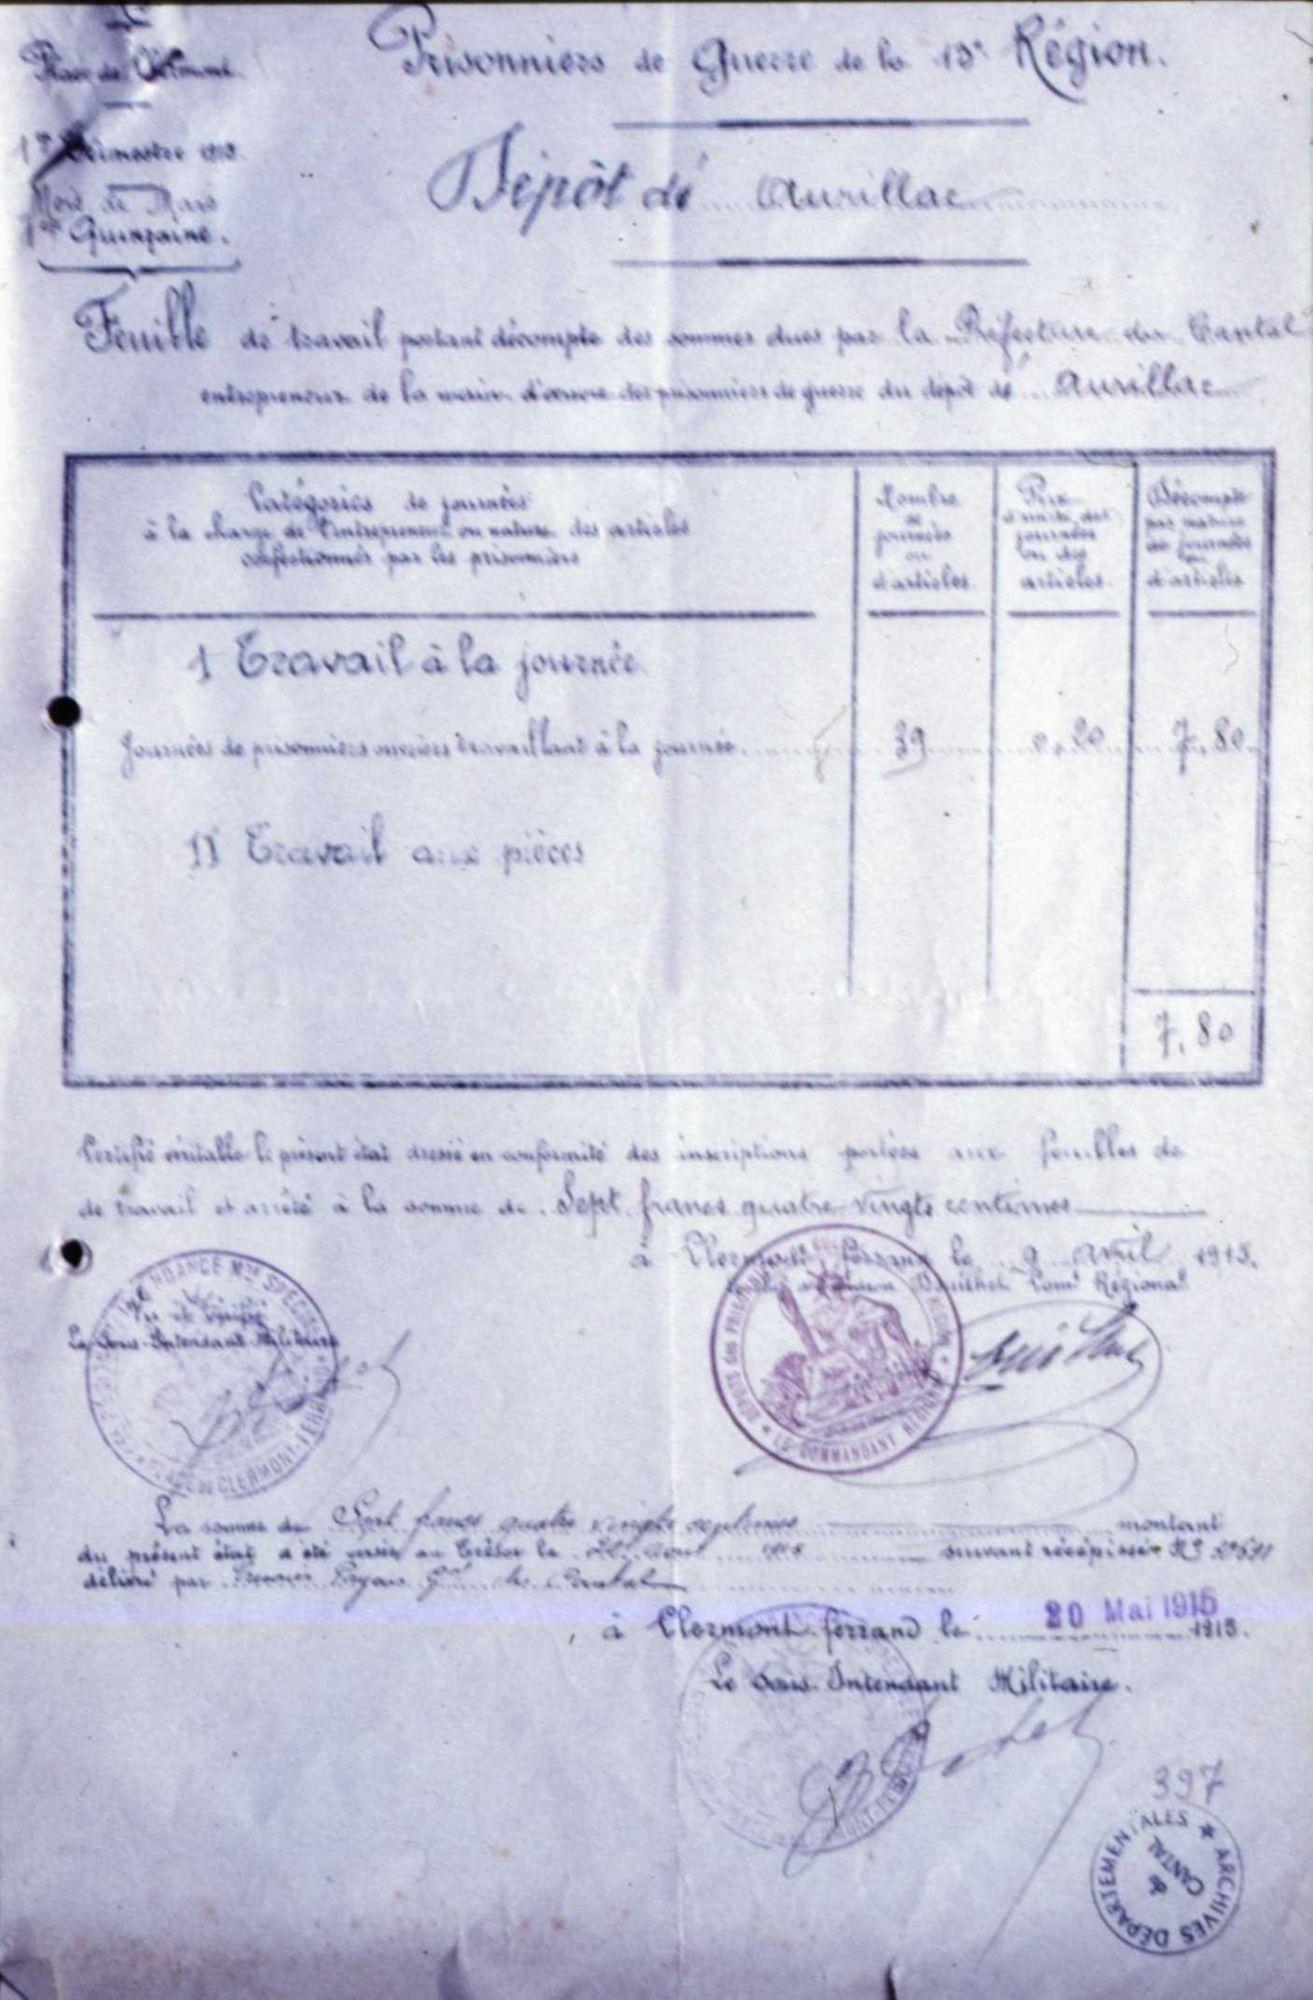 Place de Clermont
1er Trimestre 1915.
Mois de Mars
1ère Quinzaine.
Prisonniers de Guerre de la 13e Région.
Dépôt de Aurillac
Feuille de travail portant décompte des sommes dues par la Préfecture du Cantal
entrepreneur de la main d'œuvre des prisonniers de guerre du dépôt de Aurillac
Catégories de journées
à la charge de l'entrepreneur ou nature des articles
confectionnés par les prisonniers
Nombre
de
journées
ou
d'articles.
Prix
d'unité des
journées
ou des
articles.
Décompte
par nature
de journées
ou
d'articles
I Travail à la journée.
Journées de prisonniers ouvriers travaillant à la journée. 39 0,20 7,80
II Travail aux pièces
7,80
Certifié véritable le présent état dressé en conformité des inscriptions portées aux feuilles de
de travail et arrêté à la somme de Sept francs quatre vingts centimes
à Clermont-Ferrand le 9 avril 1915.
Com^t Régional
INTENDANCE M^RE SPÉCIALE
Vu et vérifié
Le Sous-Intendant Militaire
PLACE DE CLERMONT-FERRAND
DÉPÔTS des PRISONNIERS DE GUERRE
RÉGION
LE COMMANDANT RÉGIONAL
La somme de Sept francs quatre vingts centimes montant
du présent état a été versée au Trésor le 1915 suivant récépissé N°
délivré par Trésorier Payeur G^al du Cantal
à Clermont-Ferrand le 20 Mai 1915 1915.
Le Sous-Intendant Militaire.
397
ARCHIVES DÉPARTEMENTALES
du
CANTAL